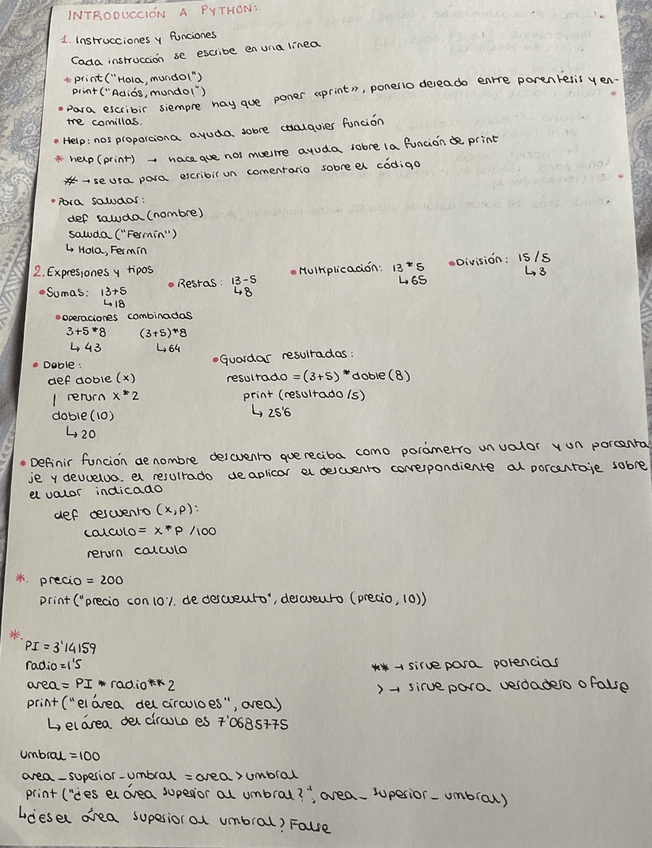 INTRODUCCIÓN A PYTHON:
1. Instrucciones y funciones
Cada instrucción se escribe en una línea
* print("Hola, mundo!")
print("Adiós, mundo!")
• Para escribir siempre hay que poner «print», ponerlo deseado entre paréntesis y en-
tre comillas.
• Help: nos proporciona ayuda sobre cualquier función
* help(print) → hace que nos muestre ayuda sobre la función de print
# → se usa para escribir un comentario sobre el código
• Para saludar:
def saluda (nombre)
saluda ("Fermín")
↳ Hola, Fermín
2. Expresiones y tipos
• Sumas: 13+5 • Restas: 13-5 • Multiplicación: 13*5 • División: 15/5
↳18 ↳8 ↳65 ↳3
• Operaciones combinadas
3+5*8 (3+5)*8
↳ 43 ↳64
• Doble: • Guardar resultados:
def doble (x) resultado = (3+5) * doble (8)
| return x*2 print (resultado /5)
doble (10) ↳ 25'6
↳ 20
• Definir función de nombre descuento que reciba como parámetro un valor y un porcenta
je y devuelva el resultado de aplicar el descuento correspondiente al porcentaje sobre
el valor indicado
def descuento (x,p):
calculo = x*p /100
return calculo
*. precio = 200
print("precio con 10% de descuento", descuento (precio, 10))
*.
PI = 3'14159
radio = 1'5 ** → sirve para potencias
area = PI * radio**2 > → sirve para verdadero o false
print("el área del círculo es", area)
↳ el área del círculo es 7'0685775
umbral = 100
area_superior_umbral = area > umbral
print("¿es el área superior al umbral?", area_superior_umbral)
↳ ¿es el área superior al umbral? False